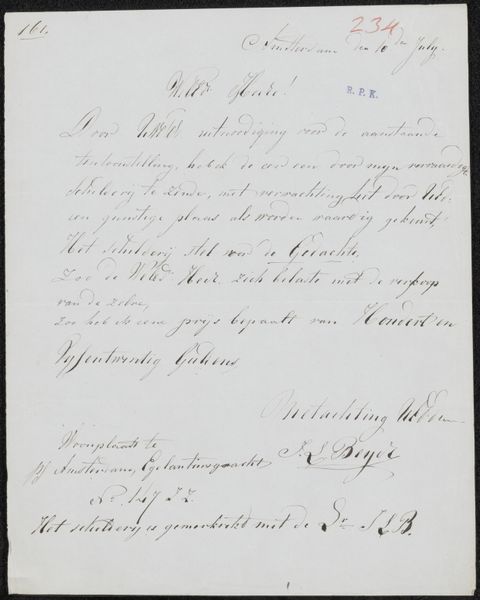 161.
234
Amsterdam den 10 den July.
R. P. K.
W.Ed. Heere!
Door UWEd uitnoodiging voor de aanstaande
tentoonstelling, heb ik de eer een door mijn vervaardig
schilderij te zende, met verwachting het door UEd.
een gunstige plaas als worden waardig gekeurt,
Het schilderij stel voor de Gedachte.
Zoo de WEd. Heer zich belaste met de verkoop
van de zelve,
Zoo heb ik eene prijs bepaalt van Hondert en
Vyfentwentig Guldens
Met achting UEd
J. L. Beyer
Woonplaats te
Amsterdam, Egelantiersgracht
No. 147 J Z.
Het schilderij is gemerkt met de Lr J L B.